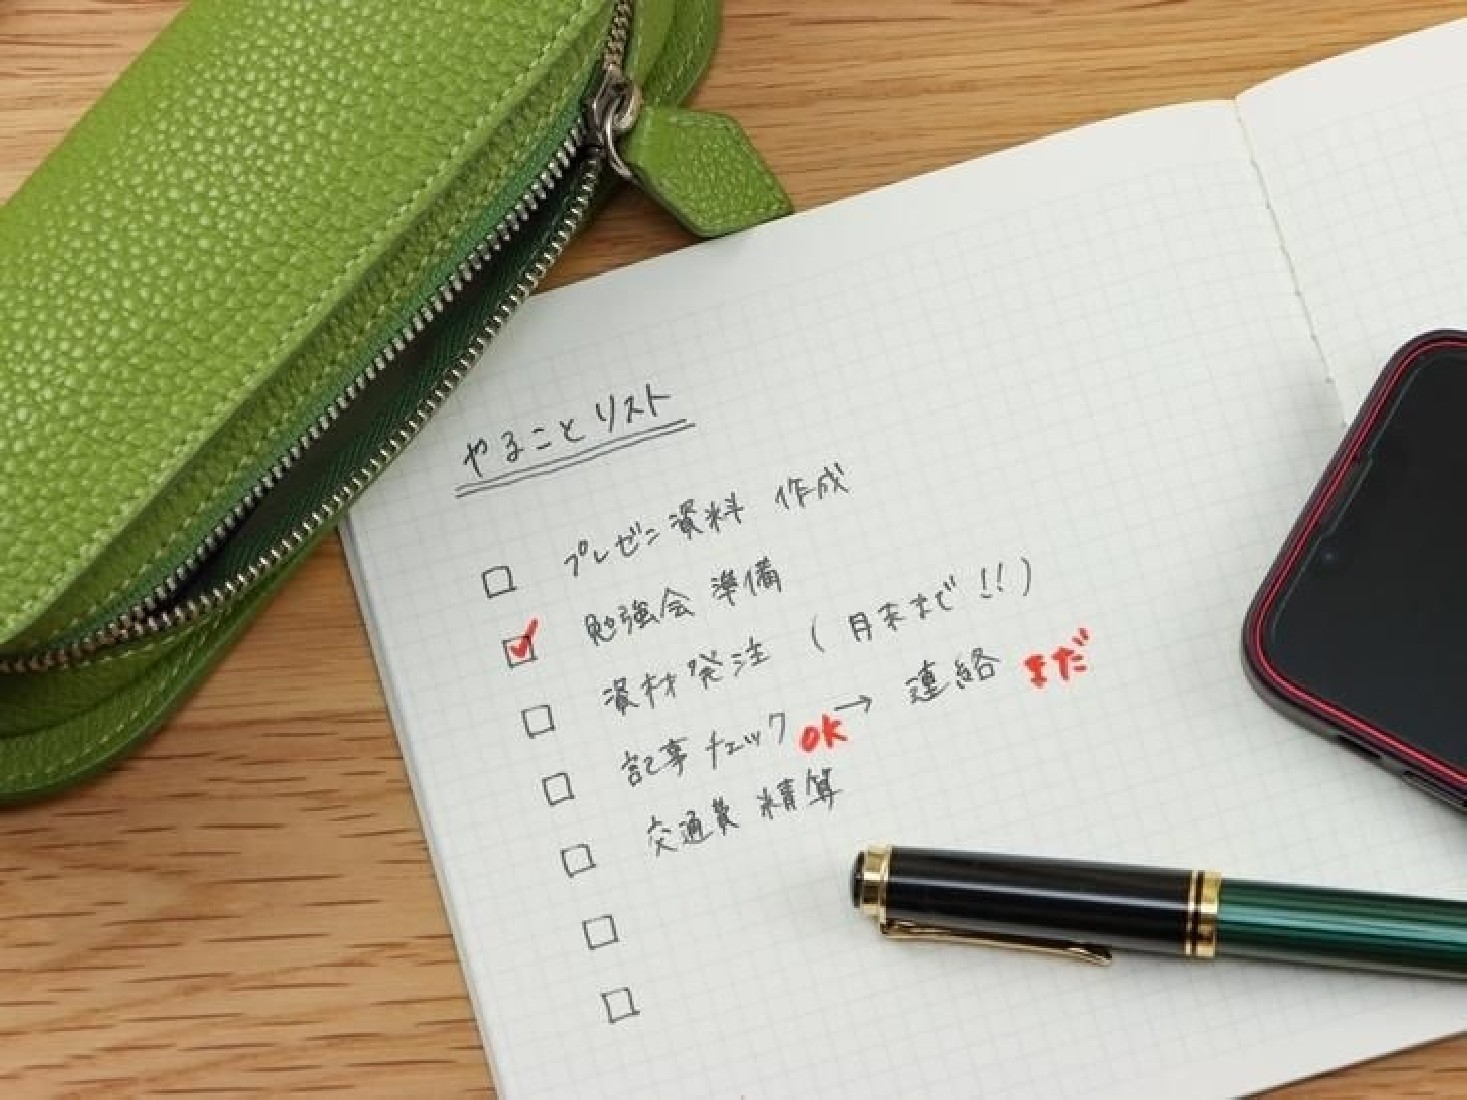 やることリスト
□ プレゼン資料 作成
☑ 勉強会 準備
□ 資材発注 (月末まで!!)
□ 記事チェック OK → 連絡 まだ
□ 交通費 精算
□
□